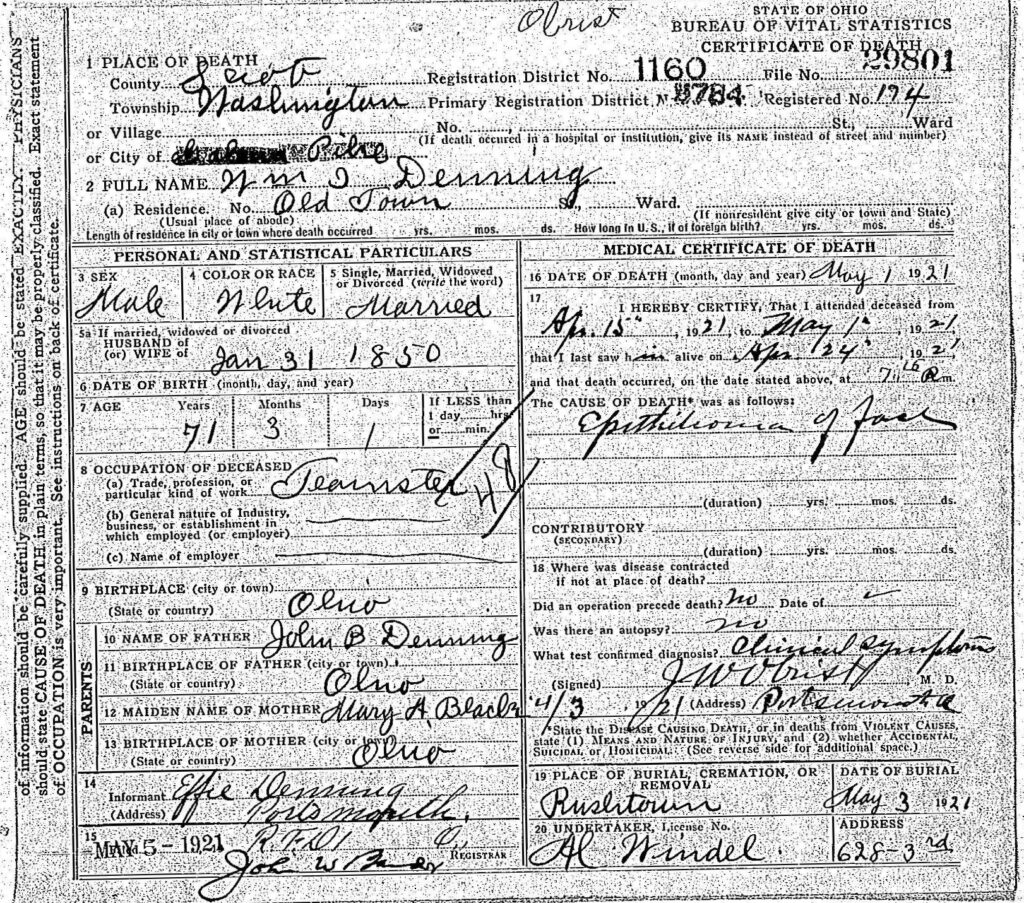 Obrist
STATE OF OHIO
BUREAU OF VITAL STATISTICS
CERTIFICATE OF DEATH
1 PLACE OF DEATH
County Scioto Registration District No. 1160 File No. 29801
Township Washington Primary Registration District No. 5784 Registered No. 194
or Village No. St., Ward
(If death occured in a hospital or institution, give its NAME instead of street and number)
or City of
2 FULL NAME Wm I Denning
(a) Residence. No. Old Town St., Ward.
(Usual place of abode) (If nonresident give city or town and State)
Length of residence in city or town where death occurred yrs. mos. ds. How long in U. S., if of foreign birth? yrs. mos. ds.
PERSONAL AND STATISTICAL PARTICULARS
3 SEX 4 COLOR OR RACE 5 Single, Married, Widowed
or Divorced (write the word)
Male White Married
5a If married, widowed or divorced
HUSBAND of
(or) WIFE of
Jan 31 1850
6 DATE OF BIRTH (month, day, and year)
7 AGE Years Months Days If LESS than
1 day hrs.
or min.
71 3 1
8 OCCUPATION OF DECEASED
(a) Trade, profession, or
particular kind of work Teamster
(b) General nature of Industry,
business, or establishment in
which employed (or employer)
(c) Name of employer
9 BIRTHPLACE (city or town)
(State or country) Ohio
PARENTS
10 NAME OF FATHER John B Denning
11 BIRTHPLACE OF FATHER (city or town)
(State or country) Ohio
12 MAIDEN NAME OF MOTHER Mary A. Black
13 BIRTHPLACE OF MOTHER (city or town)
(State or country) Ohio
14
Informant Effie Denning
(Address) Portsmouth.
R.F.D1 O.
15
Filed MAY 5 - 1921
REGISTRAR
MEDICAL CERTIFICATE OF DEATH
16 DATE OF DEATH (month, day and year) May 1 1921
17
I HEREBY CERTIFY, That I attended deceased from
Apr. 15", 1921, to May 1", 1921
that I last saw him alive on Apr 24", 1921
and that death occurred, on the date stated above, at m.
The CAUSE OF DEATH* was as follows:
Epithelioma of face
48
(duration) yrs. mos. ds.
CONTRIBUTORY
(SECONDARY)
(duration) yrs. mos. ds.
18 Where was disease contracted
if not at place of death?
Did an operation precede death? no Date of
Was there an autopsy? no
What test confirmed diagnosis? Clinical symptoms
(Signed) J W Obrist, M. D.
4/3 1921 (Address) Portsmouth O
*State the DISEASE CAUSING DEATH, or in deaths from VIOLENT CAUSES,
state (1) MEANS AND NATURE OF INJURY, and (2) whether ACCIDENTAL,
SUICIDAL OR HOMICIDAL. (See reverse side for additional space.)
19 PLACE OF BURIAL, CREMATION, OR
REMOVAL
Rushtown
DATE OF BURIAL
May 3 1921
20 UNDERTAKER, License No.
Al Windel.
ADDRESS
628-3rd.
of information should be carefully supplied. AGE should be stated EXACTLY. PHYSICIANS
should state CAUSE OF DEATH in plain terms, so that it may be properly classified. Exact statement
of OCCUPATION is very important. See instructions on back of certificate.